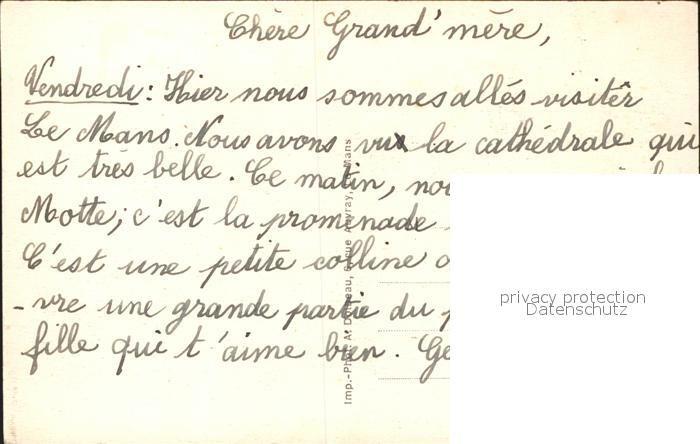 Chère Grand'mère,
Vendredi : Hier nous sommes allés visiter
Le Mans. Nous avons vu la cathédrale qui
est très belle. Ce matin,
Motte, c'est la promenade
C'est une petite colline
-vre une grande partie du
fille qui t'aime bien.
privacy protection
Datenschutz
Imp.-Photo A. Auvray, Mans